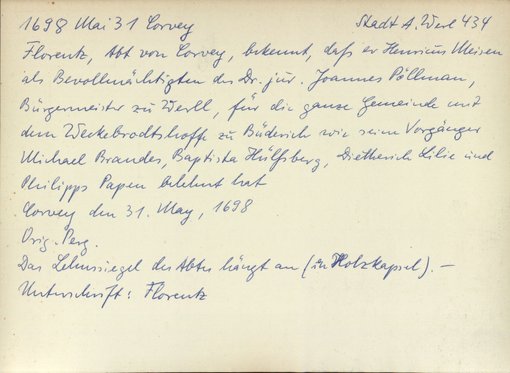 1698 Mai 31 Corvey Stadt A. Werl 434
Florentz, Abt von Corvey, bekennt, daß er Henricus Meisen
als Bevollmächtigten des Dr. jur. Joannes Pöllman,
Bürgermeister zu Werll, für die ganze Gemeinde mit
dem Weckebrodtshoffe zu Büderich wie seine Vorgänger
Michael Brandes, Baptista Hülfsberg, Dietherich Lilie und
Philipps Papen belehnt hat
Corvey den 31. May, 1698
Orig. Perg.
Das Lehnssiegel des Abtes hängt an (in Holzkapsel). –
Unterschrift: Florentz